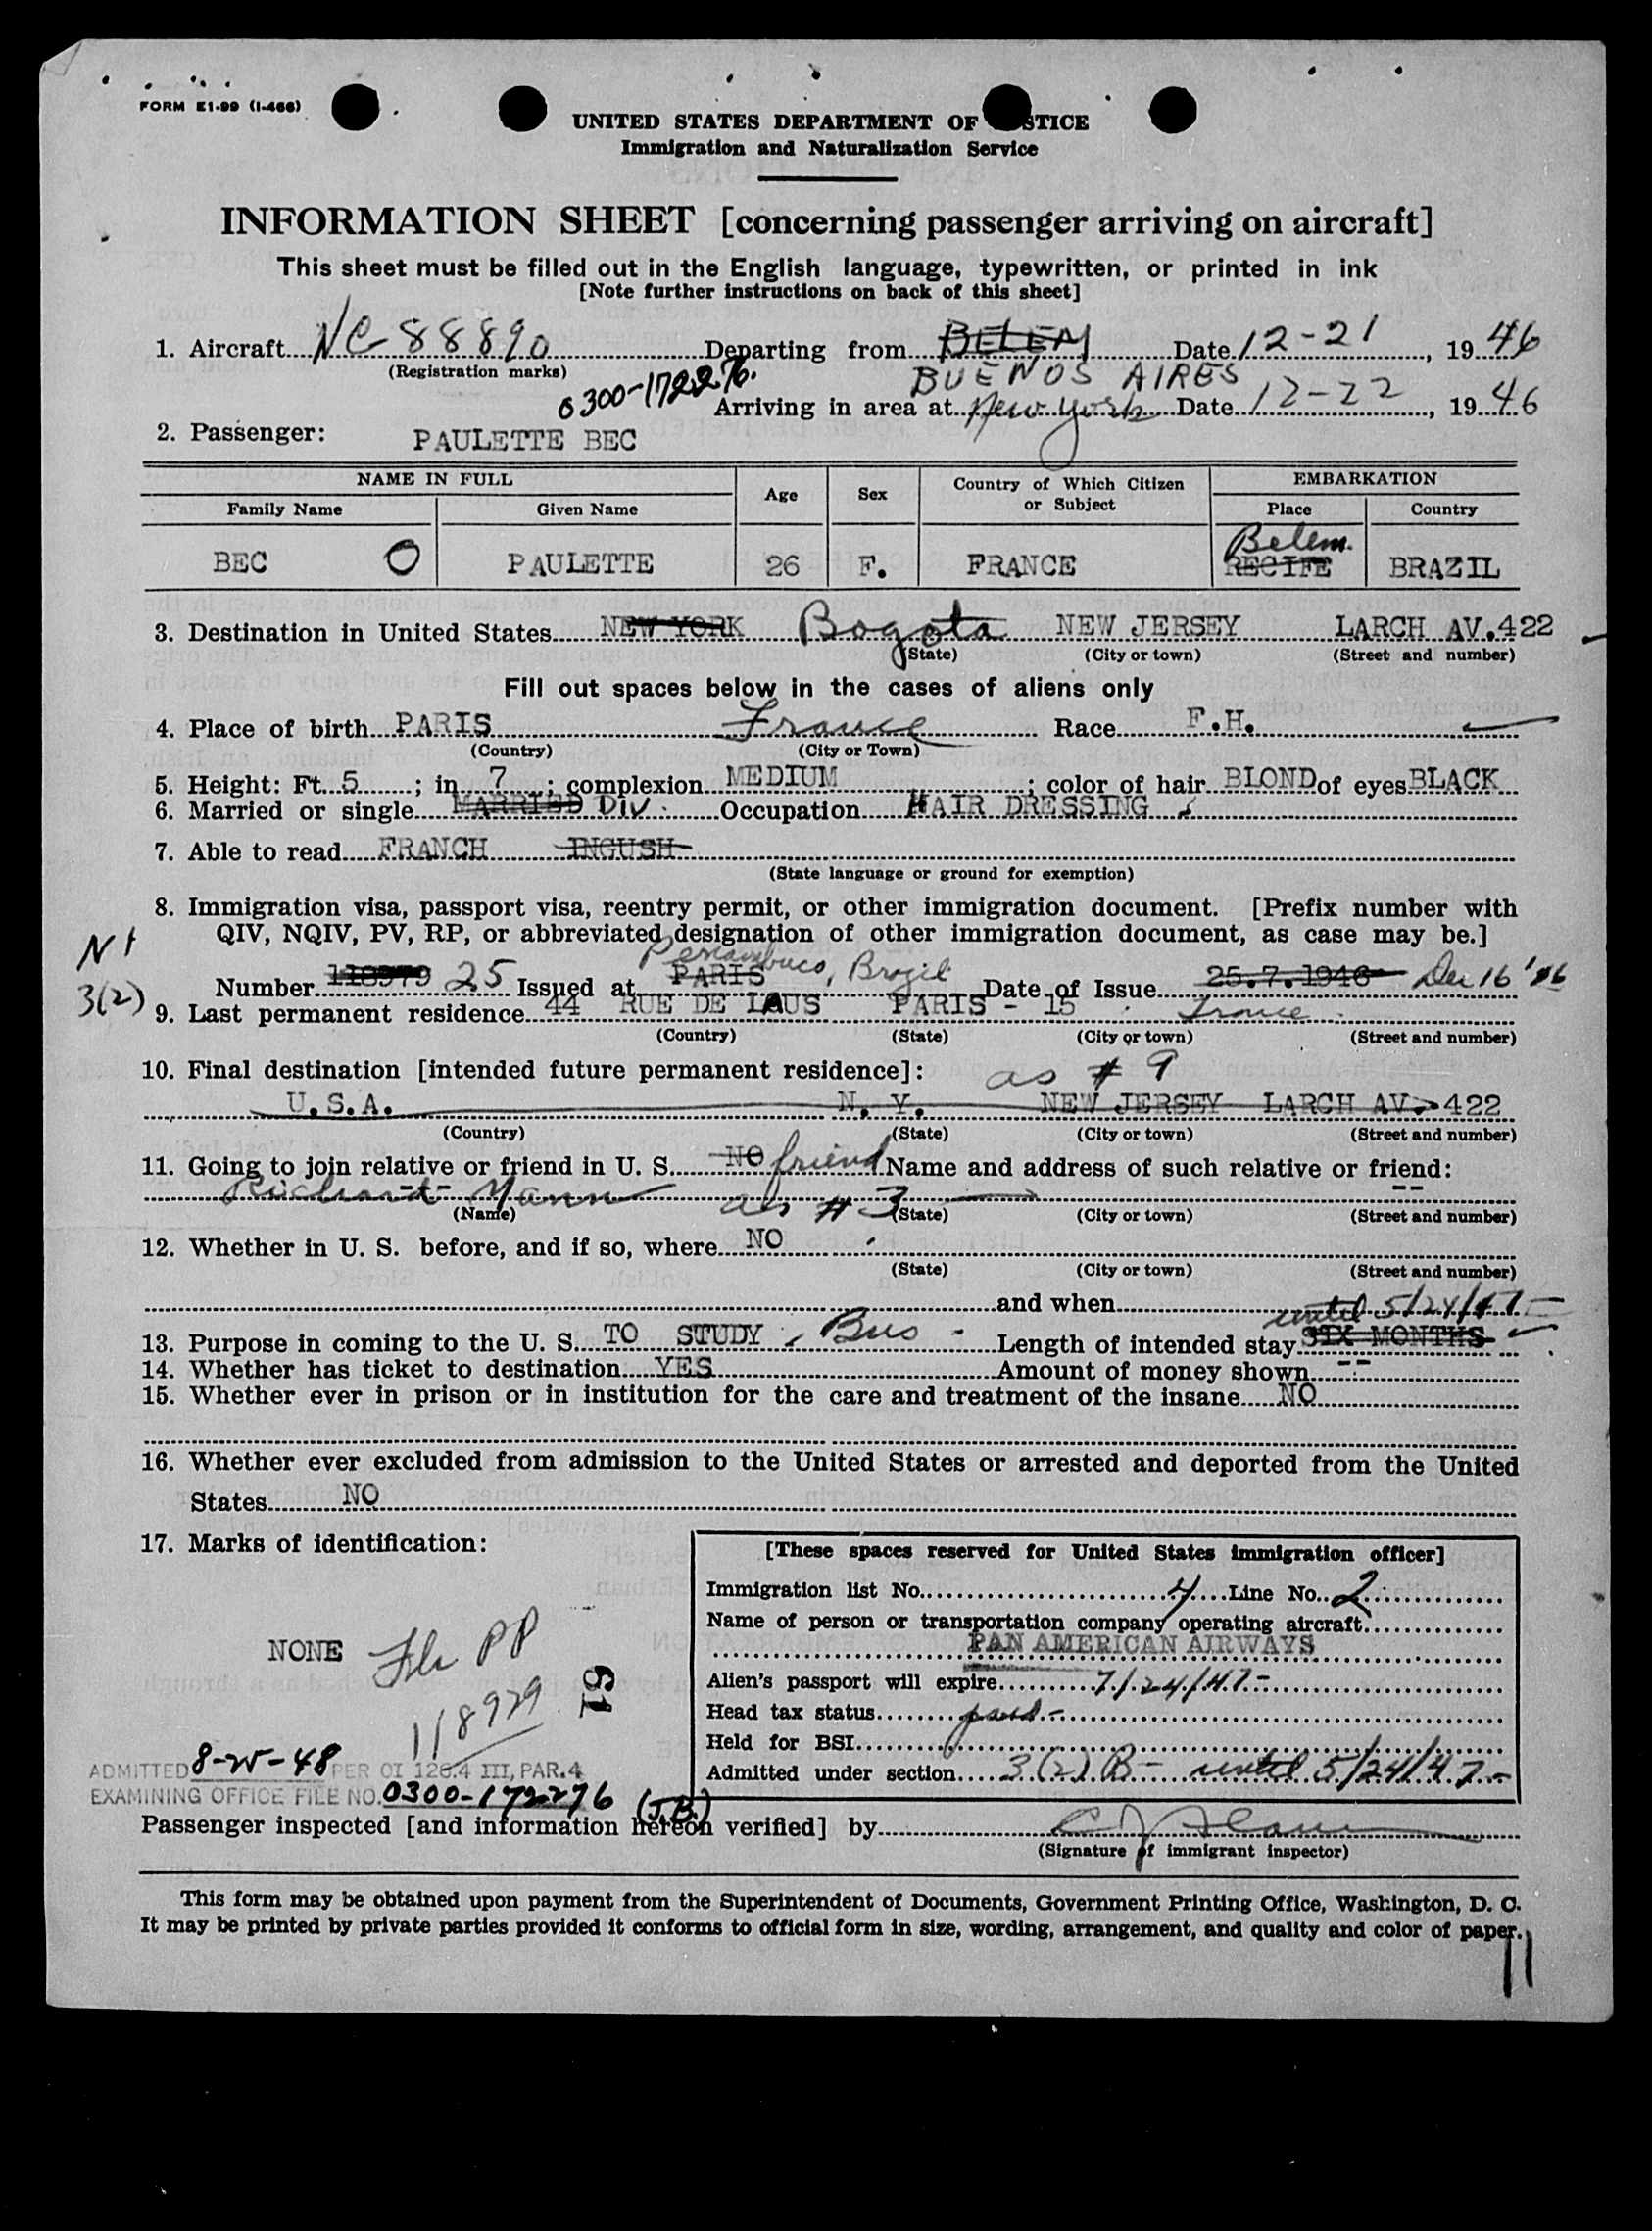 FORM E1-99 (I-466)
UNITED STATES DEPARTMENT OF STICE
Immigration and Naturalization Service
INFORMATION SHEET [concerning passenger arriving on aircraft]
This sheet must be filled out in the English language, typewritten, or printed in ink
[Note further instructions on back of this sheet]
1. Aircraft NC-88890 Departing from BELEM Date 12-21, 1946
(Registration marks) BUENOS AIRES
0300-172276. Arriving in area at New York Date 12-22, 1946
2. Passenger: PAULETTE BEC
NAME IN FULL Age Sex Country of Which Citizen or Subject EMBARKATION
Family Name Given Name Place Country
Belem.
BEC O PAULETTE 26 F. FRANCE RECIFE BRAZIL
3. Destination in United States NEW YORK Bogota NEW JERSEY LARCH AV.422
(State) (City or town) (Street and number)
Fill out spaces below in the cases of aliens only
4. Place of birth PARIS France Race F.H.
(Country) (City or Town)
5. Height: Ft. 5; in. 7; complexion MEDIUM; color of hair BLOND of eyes BLACK
6. Married or single MARRIED DIV. Occupation HAIR DRESSING
7. Able to read FRANCH INGUSH
(State language or ground for exemption)
8. Immigration visa, passport visa, reentry permit, or other immigration document. [Prefix number with
QIV, NQIV, PV, RP, or abbreviated designation of other immigration document, as case may be.]
Pernambuco, Brazil
Number 118979 25 Issued at PARIS Date of Issue 25.7.1946 Dec 16 '46
3(2)
9. Last permanent residence 44 RUE DE LAUS PARIS - 15 France
(Country) (State) (City or town) (Street and number)
10. Final destination [intended future permanent residence]: as # 9
U.S.A. N. Y. NEW JERSEY LARCH AV. 422
(Country) (State) (City or town) (Street and number)
11. Going to join relative or friend in U. S. NO friend Name and address of such relative or friend:
Richard Mann as # 3 --
(Name) (State) (City or town) (Street and number)
12. Whether in U. S. before, and if so, where NO
(State) (City or town) (Street and number)
and when
until 5/24/47
13. Purpose in coming to the U. S. TO STUDY Bus Length of intended stay SIX MONTHS
14. Whether has ticket to destination YES Amount of money shown --
15. Whether ever in prison or in institution for the care and treatment of the insane NO
16. Whether ever excluded from admission to the United States or arrested and deported from the United
States NO
17. Marks of identification:
NONE
PP
118979
19
[These spaces reserved for United States immigration officer]
Immigration list No. 4 Line No. 2
Name of person or transportation company operating aircraft
PAN AMERICAN AIRWAYS
Alien's passport will expire 7/24/47-
Head tax status paid-
Held for BSI
Admitted under section 3(2) B- until 5/24/47-
ADMITTED 8-25-48 PER OI 126.4 III, PAR.4
EXAMINING OFFICE FILE NO. 0300-172276 (J.B.)
Passenger inspected [and information hereon verified] by
(Signature of immigrant inspector)
This form may be obtained upon payment from the Superintendent of Documents, Government Printing Office, Washington, D. C.
It may be printed by private parties provided it conforms to official form in size, wording, arrangement, and quality and color of paper.
11